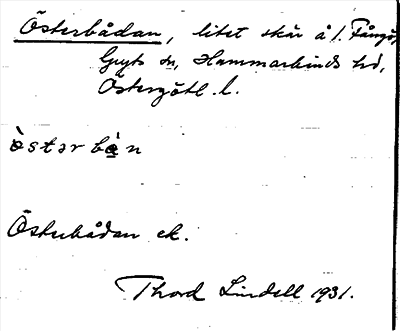 Österbådan, litet skär å l. Fångö,
Gryts sn, Hammarkinds hd,
Östergötl. l.
òstər bɷ̀n
Österbådan ek.
Thord Lindell 1931.